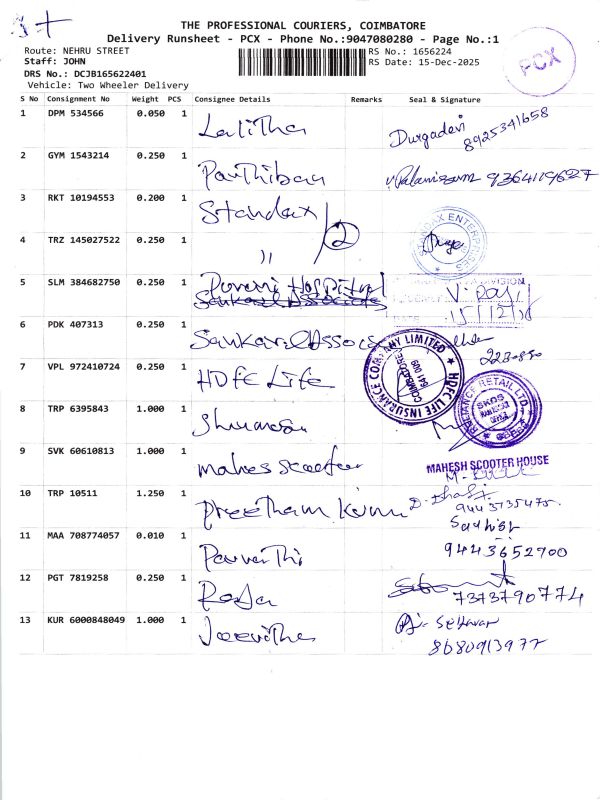 THE PROFESSIONAL COURIERS, COIMBATORE
Delivery Runsheet - PCX - Phone No.:9047080280 - Page No.:1
Route: NEHRU STREET
RS No.: 1656224
Staff: JOHN
RS Date: 15-Dec-2025
PCX
DRS No.: DCJB165622401
Vehicle: Two Wheeler Delivery
S No Consignment No Weight PCS Consignee Details Remarks Seal & Signature
1 DPM 534566 0.050 1 Lalitha Durgadevi 8925341658
2 GYM 1543214 0.250 1 Parthiban V. Palanissamy 9364119627
3 RKT 10194553 0.200 1 Standax
4 TRZ 145027522 0.250 1 〃 2 ENTERPRISES
5 SLM 384682750 0.250 1 Hospital
Sankara Associates
DATE 15/12/25
6 PDK 407313 0.250 1 Sankara Assocs 2230850
7 VPL 972410724 0.250 1 HDFC Life
HDFC LIFE INSURANCE COMPANY LIMITED
COIMBATORE 641 009
8 TRP 6395843 1.000 1
RELIANCE RETAIL LTD.
9 SVK 60610813 1.000 1 Mahes Scooter
MAHESH SCOOTER HOUSE
10 TRP 10511 1.250 1 Preetham Kumar 9443735475
11 MAA 708774057 0.010 1 Parvathi 9443652700
12 PGT 7819258 0.250 1 Roja 7373790774
13 KUR 6000848049 1.000 1 Jeevitha 8680913977